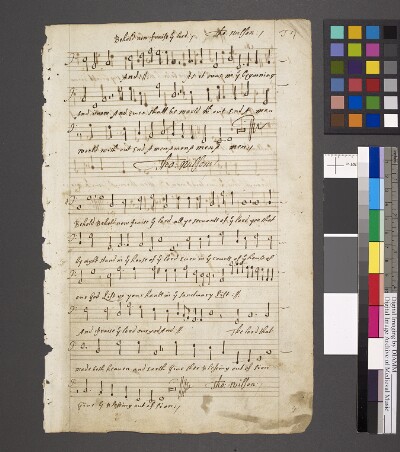 Behold now praise yͤ lord / Tho: Wilson /
And it. As it was in yͤ beginning
And is now, and ever shall be world wth out end A men
world with out end A men amen A men A men /
Tho: Wilson
Behold Behold now praise yͤ lord all ye servants of yͤ lord yee that
by night stand in yͤ house of yͤ lord even in yͤ courts of yͤ house of
our God Lift up your hands in yͤ sanctuary Lift :||:
And praise yͤ lord The lord that
made both heaven and earth Give thee blessing out of Sion
Tho: Wilson
Give yͤ blessing out of Sion /
Digital Imaging by DIAMM
Digital Image Archive of Medieval Music